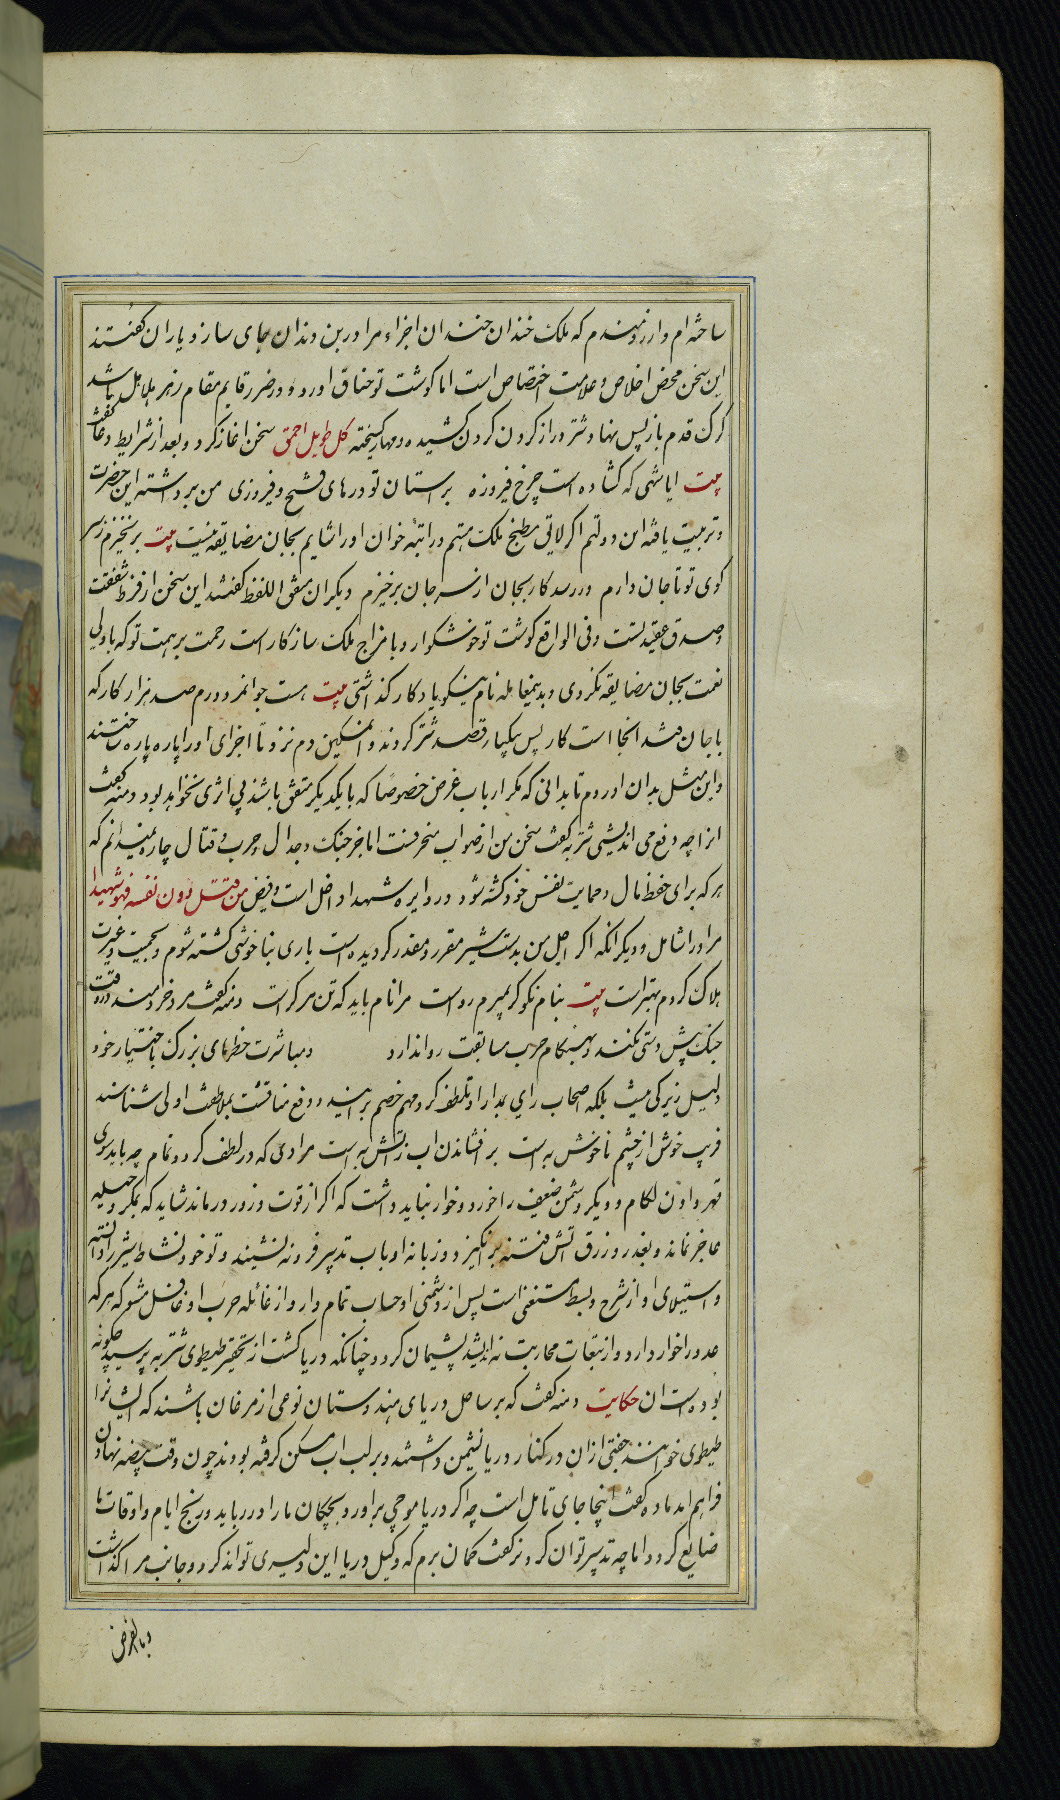 ساخته‌ام و ارزومندم که ملک خندان خندان اجزاء مرا در بن دندان جای سازد یاران کفتند
این سخن محض اخلاص و علامت اختصاص است اما کوشت تو خناق اورد و در ضرر قایم مقام زهر هلاهل باشد
کرک قدم باز پس نهاد و شتر دراز کردن کردن کشیده و مهار کسیخته کل طویل احمق سخن اغاز کرد و بعد از شرایط دعا کفت
بیت ایا شهی که کشاده است چرخ فیروزه بر استان تو درهای فتح و فیروزی من برداشته این حضرت
و تربیت یافته این دولتم اکر لایق مطبخ ملک هستم و راتبه خوان او را شایم بجان مضایقه نیست بیت برنخیزم ز سر
کوی تو تا جان دارم ور رسد کار بجان از سر جان برخیزم دیکران متفق اللفظ کفتند این سخن از فرط شفقت
و صدق عقیدتست و فی الواقع کوشت تو خوشکوار و با مزاج ملک سازکار است رحمت بر همت تو که با ولی
نعمت بجان مضایقه نکردی و بدین معامله نام نیکو یادکار کذاشتی بیت هست جوانمرد درم صد هزار کار که
با جان فتد انجا است کار پس یکبار قصد شتر کردند و ان مسکین دم نزد تا اجزای او را پاره پاره ساختند
و این مثل بدان اوردم تا بدانی که مکر ارباب غرض خصوصا که با یکدیکر متفق باشند بی اثری نخواهد بود دمنه کفت
انرا چه دفع می اندیشی شتربه کفت سخن من از صواب منحرف نیست اما جز جنک و جدال و حرب و قتال چاره نمیدانم که
هر که برای حفظ مال و حمایت نفس خود کشته شود در دایره شهدا داخل است و فیض من قتل دون نفسه فهو شهیدا
مر او را شامل و دیکر انکه اکر اجل من بدست شیر مقرر و مقدر کردیده است باری بناخوشی کشته شوم و بحمیت و غیرت
هلاک کردم بهتر است بیت بنام نکو کر بمیرم رواست مرا نام باید که تن مرک راست دمنه کفت مرد خردمند در وقت
جنک پیش دستی نکند و بهنکام حرب سابقت روا ندارد و مباشرت خطرهای بزرک باختیار خود
دلیل زیرکی نیست بلکه اصحاب رای بمدارا و تلطف کرد مهم خصم برایند و دفع مناقشت بملاطفت اولی شناسند
فریب خوش از خشم ناخوش به است بر افشاندن اب ز اتش به است مرادی که در لطف کردد تمام چه باید سوی
قهر دادن لکام و دیکر دشمن ضعیف را خورد و خوار نباید داشت که اکر از قوت و زور درماند شاید که بمکر و حیله
عاجز نماند و بغدر و زرق اتش فتنه برانکیزد و زبانه او باب تدبیر فرو ننشیند و تو خود نشاط شیر را دانسته
و استیلای او از شرح و بسط مستغنی است پس از دشمنی او حساب تمام دار و از غائله حرب او غافل مشو که هر که
عدو را خوار دارد و از تبعات محاربت نه اندیشد پشیمان کردد چنانکه دریا کشت از تحقیر طیطوی شتربه پرسید چکونه
بوده است ان حکایت دمنه کفت که بر ساحل دریای هندوستان نوعی از مرغان باشند که ایشانرا
طیطوی خوانند جفتی از ان در کنار دریا نشیمن داشتند و بر لب اب مسکن کرفته بودند چون وقت بیضه نهادن
فراهم امد ماده کفت اینجا جای تامل است چه اکر دریا موجی براورد و بچکان ما را در رباید و رنج ایام و اوقات ما
ضایع کردد انرا چه تدبیر توان کرد نر کفت کمان نبرم که وکیل دریا این دلیری تواند کرد و جانب مرا کذاشت
و بالفرض